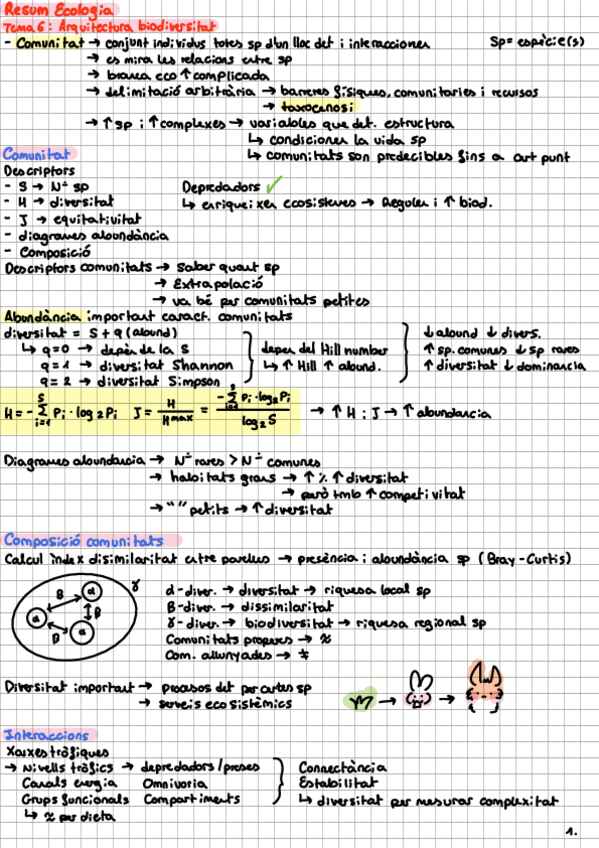 Resum Ecologia
Tema 6: Arquitectura biodiversitat
- Comunitat → conjunt individus totes sp d'un lloc det i interaccions Sp = espècie(s)
→ es mira les relacions entre sp
→ branca eco ↑ complicada
→ delimitació arbitrària → barreres físiques, comunitaries i recursos
→ taxocenosi
→ ↑ sp i ↑ complexes → variables que det. estructura
↳ condicionen la vida sp
↳ comunitats son predecibles fins a art punt
Comunitat
Descriptors
- S → Nº sp Depredadors ✓
- H → diversitat ↳ enriqueixen ecosistemes → Regulen i ↑ biod.
- J → equitativitat
- diagrames abundància
- Composició
Descriptors comunitats → Saber quant sp
→ Extrapolació
→ va bé per comunitats petites
Abundància important caract. comunitats
diversitat = S + q (abund) ↓ abund ↓ divers.
↳ q=0 → depèn de la S depen del Hill number ↑ sp. comunes ↓ sp rares
q=1 → diversitat Shannon ↳ ↑ Hill ↑ abund. ↑ diversitat ↓ dominancia
q=2 → diversitat Simpson
H = - S Σ i=1 Pi · log2 Pi J = H / Hmax = - S Σ i=1 Pi · log2 Pi / log2 S → ↑ H ; J → ↑ abundancia
Diagrames abundancia → Nº rares > Nº comunes
→ habitats grans → ↑ % ↑ diversitat
→ però tmb ↑ competivitat
→ " " petits → ↑ diversitat
Composició comunitats
Calcul index disimilaritat entre parelles → presència i abundància sp (Bray-Curtis)
α β α β α β γ
α-diver. → diversitat → riquesa local sp
β-diver. → dissimilaritat
γ-diver. → biodiversitat → riquesa regional sp
Comunitats properes → ≈
Com. allunyades → ≠
Diversitat important → processos det per certes sp
→ serveis ecosistèmics
Interaccions
Xarxes tròfiques
→ Nivells tròfics → depredadors/preses Connectància
Canals energia Omnivoria Estabilitat
Grups funcionals Compartiments ↳ diversitat per mesurar complexitat
↳ % per dieta
1.